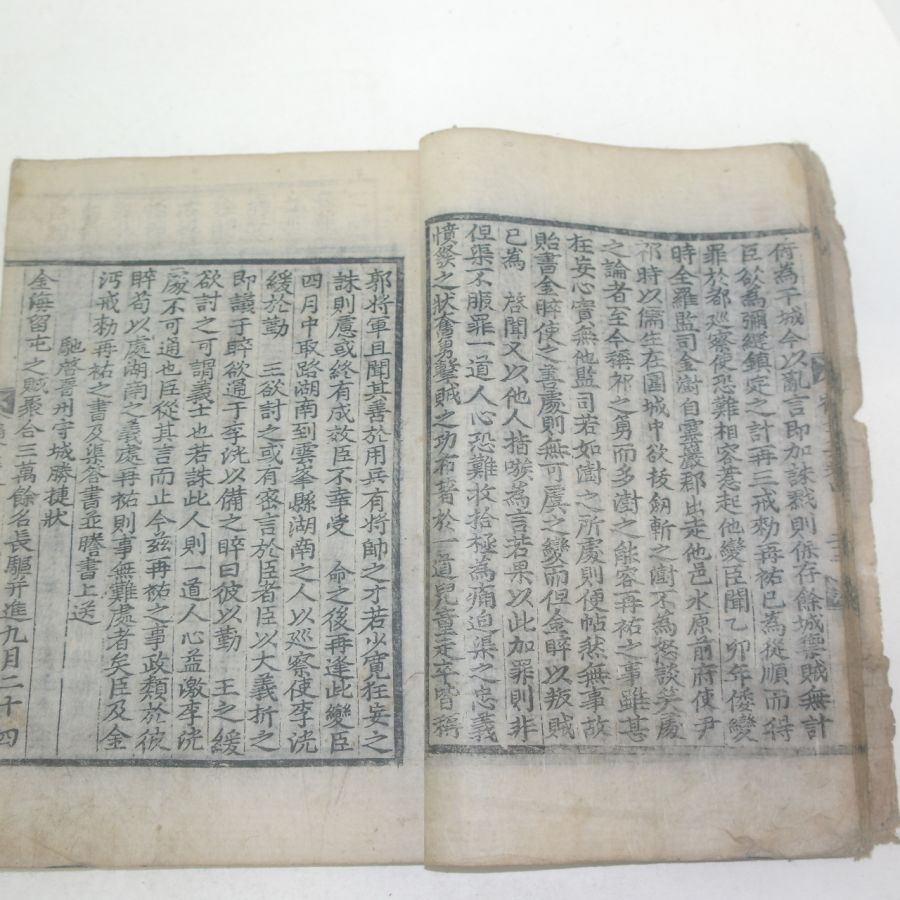 倚為干城今以亂言即加誅戮則保存餘城禦賊無計
臣欲為彌縫鎮定之計再三戒勑再祐已為從順而得
罪於都巡察使恐難相容惹起他變臣聞乙卯年倭變
時全羅監司金澍自靈巖郡出走他邑水原前府使尹
祁時以儒生在圍城中欲拔劒斬之澍不為怒談笑處
之論者至今稱祁之勇而多澍之能容再祐之事雖甚
在妄心實無他監司若如澍之所處則便帖然無事故
貽書金睟使之善處則無可虞之變而但金睟以叛賊
已為 啓聞又以他人指嗾為言若果以此加罪則非
但渠不服罪一道人心恐難收拾極為痛迫渠之忠義
憤發之狀奮勇擊賊之功布著於一道兒童走卒皆稱
郭將軍且聞其善於用兵有將帥之才若少寬狂妄之
誅則庶或終有成效臣不幸受 命之後再逢此變臣
四月中取路湖南到雲峯縣湖南之人以巡察使李洸
緩於勤 王欲討之或有密言於臣者臣以大義折之
即議于睟欲通于李洸以備之睟曰彼以勤 王之緩
欲討之可謂義士也若誅此人則一道人心益激李洸
處不可通也臣從其言而止今茲再祐之事政類於彼
睟苟以處湖南之義處再祐則事無難處者矣臣及金
沔戒勑再祐之書及渠答書並謄書上送
馳啓晋州守城勝捷狀
金海留屯之賊聚合三萬餘名長驅并進九月二十四